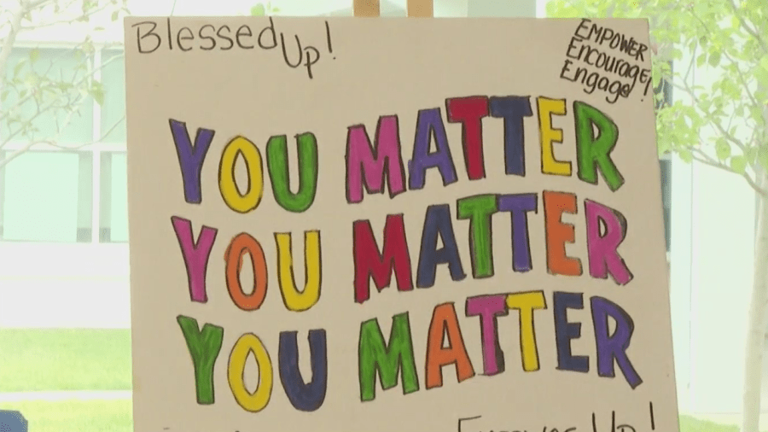 Blessed Up!
EMPOWER
Encourage!
Engage
YOU MATTER
YOU MATTER
YOU MATTER
Up!